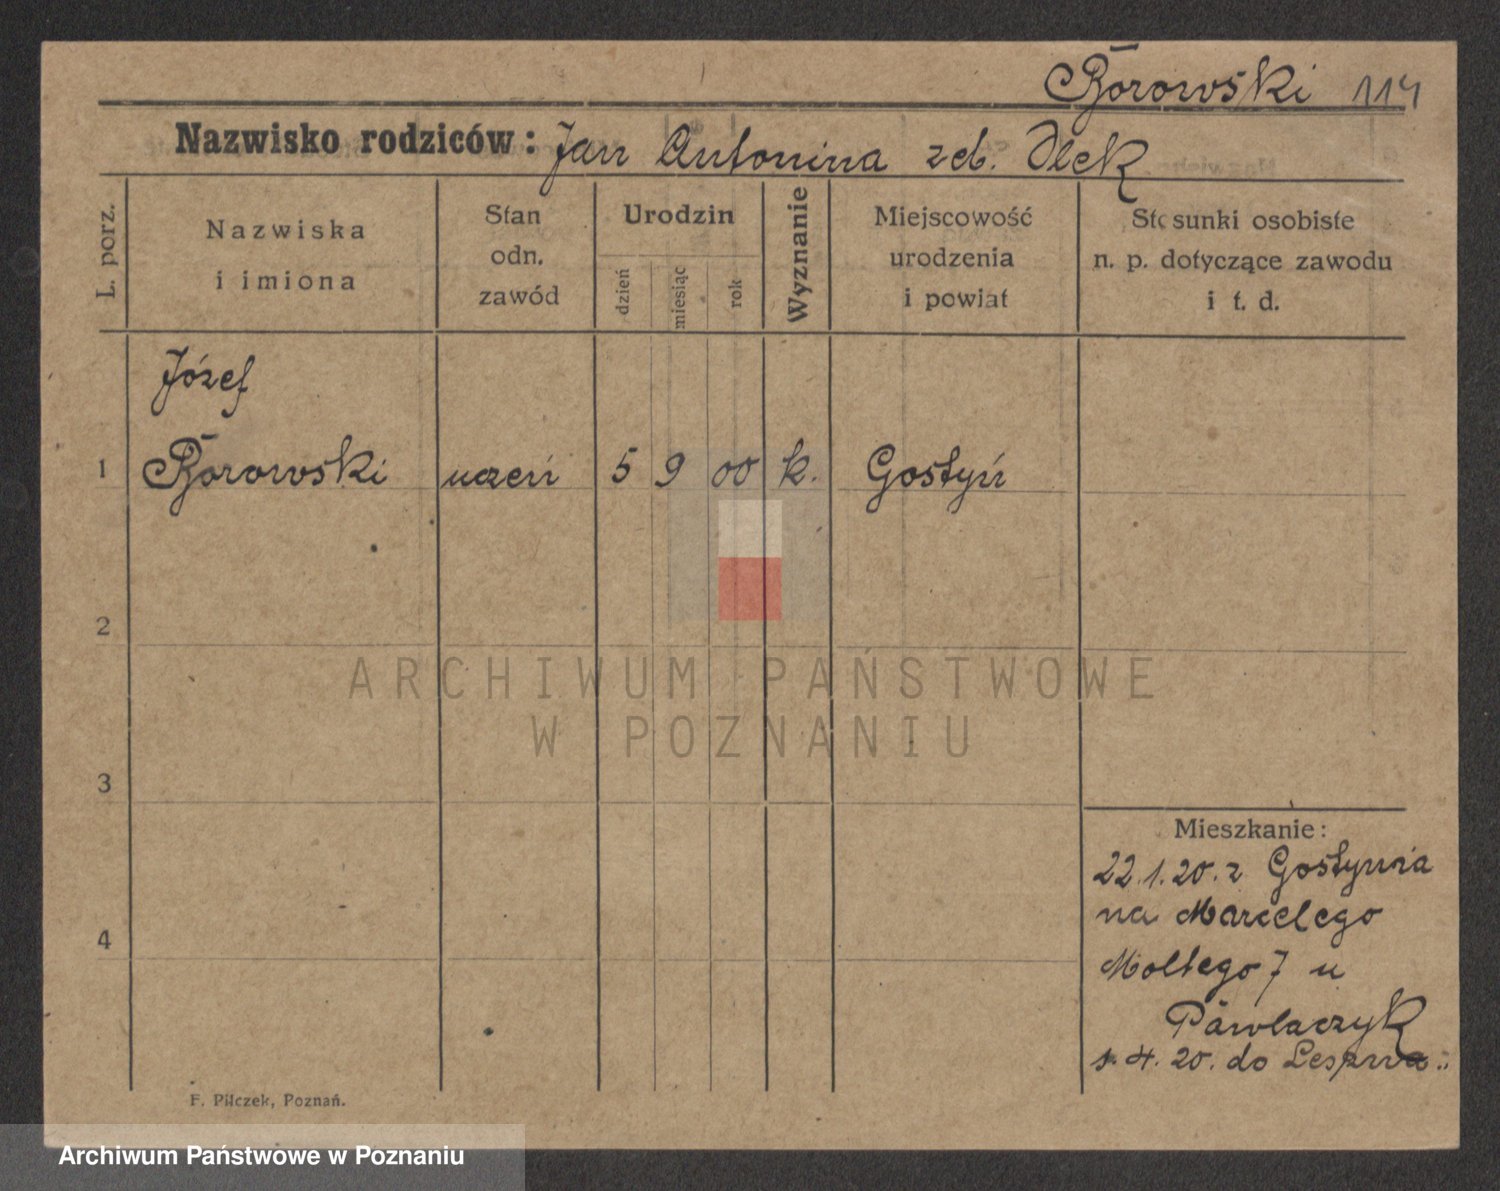 Borowski 114
Nazwisko rodziców: Jan Antonina zeb. Olek
L. porz.
Nazwiska
i imiona
Stan
odn.
zawód
Urodzin
dzień
miesiąc
rok
Wyznanie
Miejscowość
urodzenia
i powiat
Stosunki osobiste
n. p. dotyczące zawodu
i t. d.
Józef
1 Borowski uczeń 5 9 00 k. Gostyń
2
ARCHIWUM PAŃSTWOWE
W POZNANIU
3
Mieszkanie:
22.1.20. z Gostynia
na Marcelego
4
Moltego 7 u
Pawlaczyk
1.4.20. do Leszna
F. Pilczek, Poznań.
Archiwum Państwowe w Poznaniu